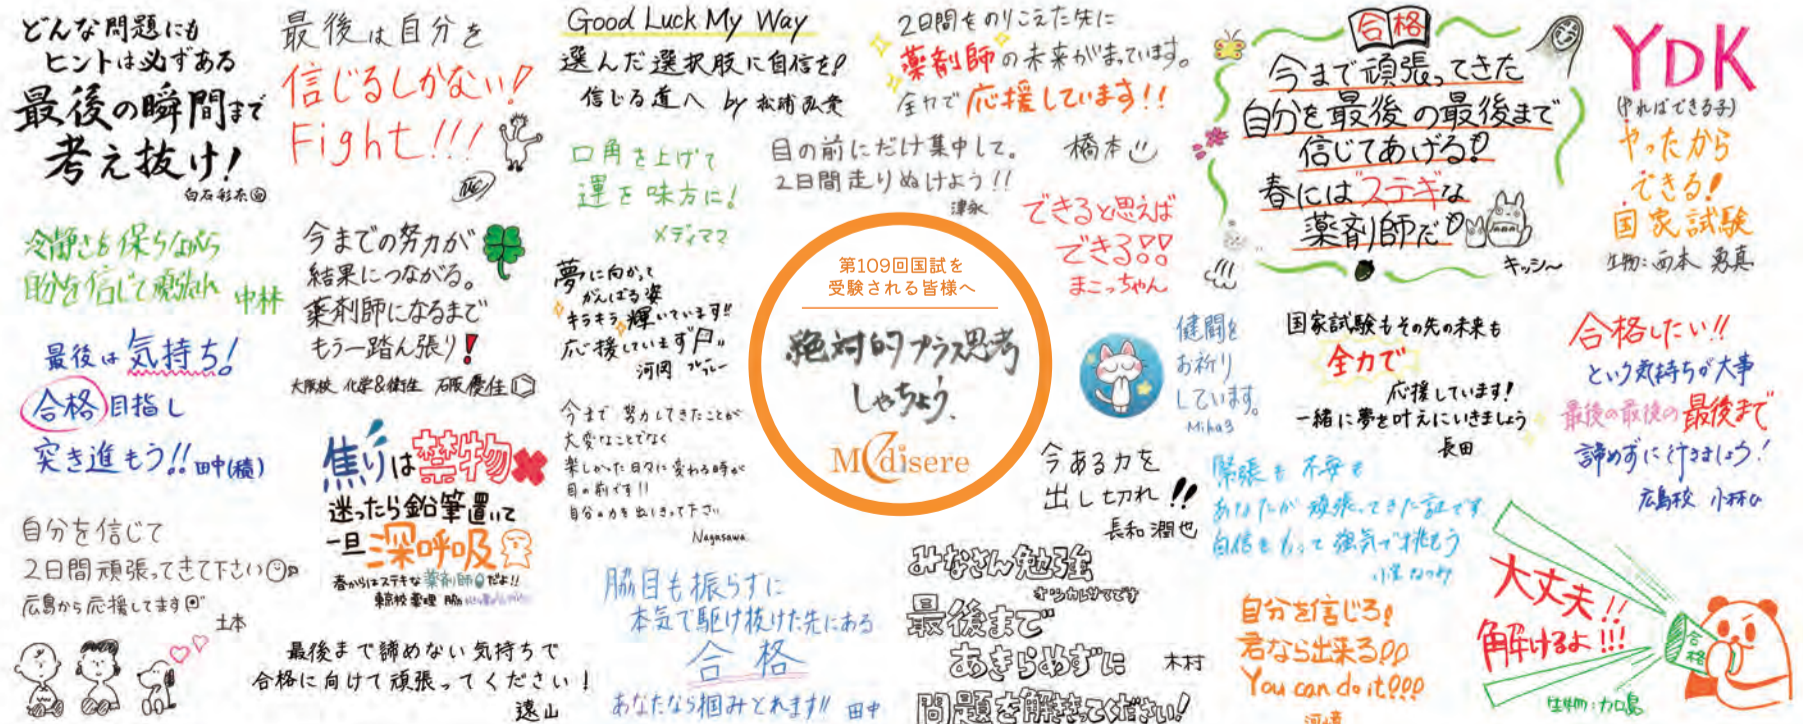 どんな問題にも
ヒントは必ずある
最後の瞬間まで
考え抜け!
白石彩奈
最後は自分を
信じるしかない!
Fight!!!
Good Luck My Way
選んだ選択肢に自信を!
信じる道へ by 松浦
2日間をのりこえた先に
薬剤師の未来がまっています。
全力で応援しています!!
橋本
口角を上げて
運を味方に!
メディママ
目の前にだけ集中して。
2日間走りぬけよう!!
津永
できると思えば
できる!!
まこっちゃん
合格
今まで頑張ってきた
自分を最後の最後まで
信じてあげる!
春にはステキな
薬剤師だ!
キッシ〜
YDK
(やればできる子)
やったから
できる!
国家試験
生物:西本 勇真
冷静さを保ちながら
自分を信じて
中林
今までの努力が
結果につながる。
薬剤師になるまで
もう一踏ん張り!
大阪校 化学&衛生 石阪優佳
夢に向かって
がんばる姿
キラキラ輝いています!!
応援しています
河岡
第109回国試を
受験される皆様へ
絶対的プラス思考
しちゃおう.
Medisere
健闘を
お祈り
しています。
国家試験もその先の未来も
全力で
応援しています!
一緒に夢を叶えにいきましょう
長田
合格したい!!
という気持ちが大事
最後の最後の最後まで
諦めずに行きましょう!
広島校 小林
最後は気持ち!
合格目指し
突き進もう!! 田中(積)
焦りは禁物
迷ったら鉛筆置いて
一旦深呼吸
春からはステキな薬剤師だよ!!
東京校 薬理
今まで努力してきたことが
大変なことでなく
楽しかった日々に変わる時が
目の前です!!
自分の力を出しきって下さい
Nagasawa
今ある力を
出し切れ!!
長和 潤也
緊張も不安も
あなたが頑張ってきた証です
自信をもって強気で挑もう
自分を信じて
2日間頑張ってきて下さい
広島から応援してます
土本
最後まで諦めない気持ちで
合格に向けて頑張ってください!
遠山
脇目も振らずに
本気で駆け抜けた先にある
合格
あなたなら掴みとれます!! 田中
みなさん勉強
オツカレサマです
最後まで
あきらめずに
問題を解ききってください!
木村
自分を信じろ!
君なら出来る!!
You can do it!!!
大丈夫!!
解けるよ!!!
合格
生物:加島